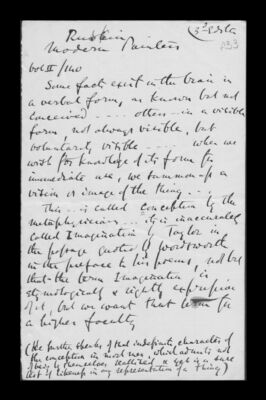 Ruskin
Modern Painters
3d Edtn
133
vol II / 140
Some facts exist in the brain in
a verbal form, as known but not
conceived .... others in a visible
form, not always visible, but
voluntarily visible ..... when we
wish for knowledge of its form for
immediate use, we summon up a
vision or image of the thing ....
This is called Conception by the
metaphysicians ... it is inaccurately
called Imagination by Taylor in
the passage quoted by Wordsworth
in the preface to his poems, not but
that the term Imagination is
etymologically & rightly expressive
of it, but we want that term for
a higher faculty
(He further speaks of that indefinite character of
the conception in most men, which admits not
of being by themselves realized & yet is a sure
test of likeness in any representation of a thing)